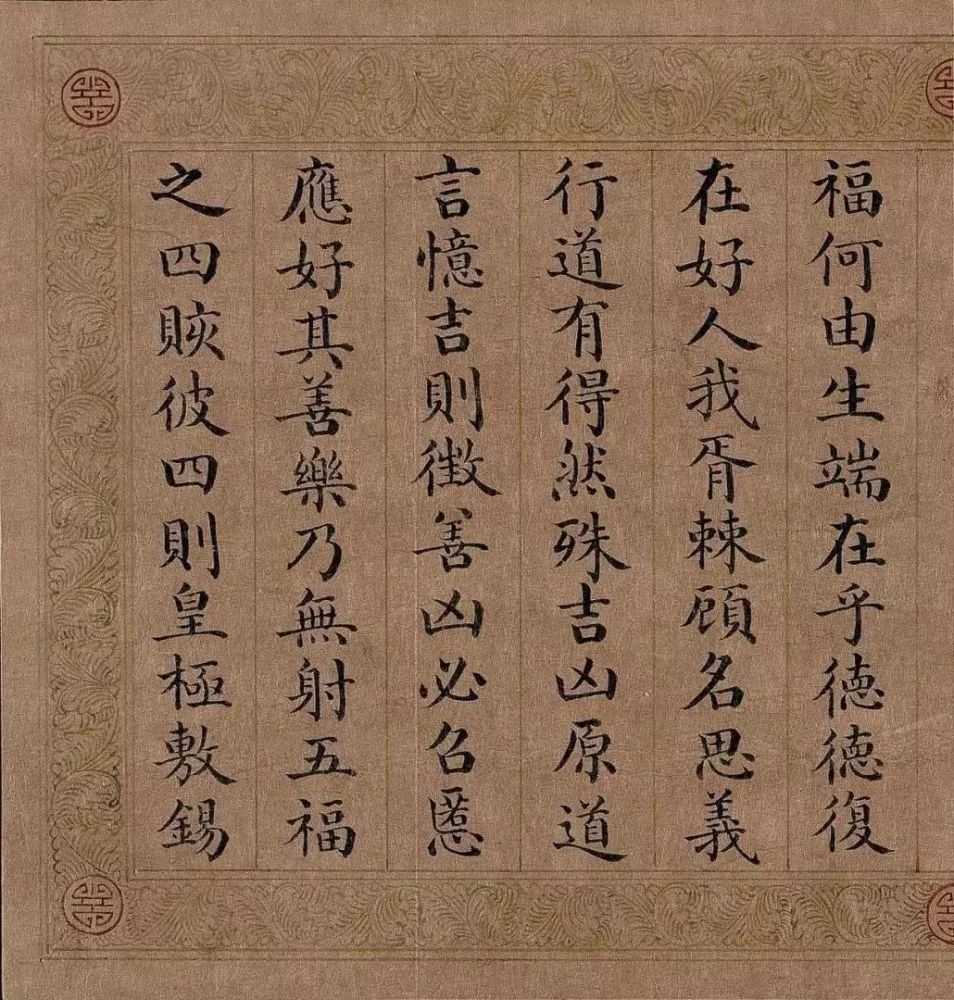 福何由生端在乎德德復
在好人我胥棘顧名思義
行道有得然殊吉凶原道
言憶吉則徵善凶必召慝
應好其善樂乃無射五福
之四賅彼四則皇極敷錫